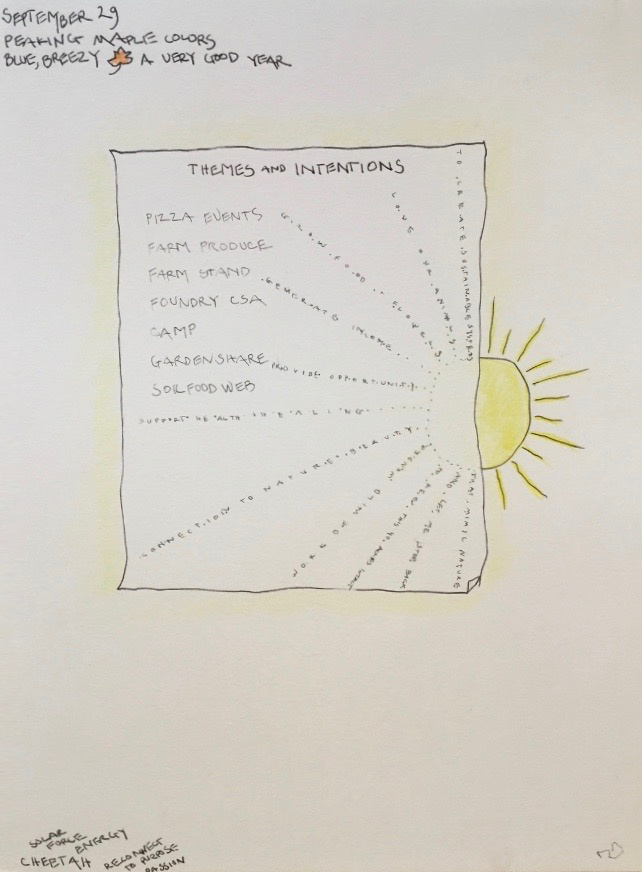 SEPTEMBER 29
PEAKING MAPLE COLORS
BLUE, BREEZY A VERY GOOD YEAR
THEMES AND INTENTIONS
PIZZA EVENTS
FARM PRODUCE
FARM STAND
FOUNDRY CSA
CAMP
GARDENSHARE
SOILFOODWEB
TO CREATE SUSTAINABLE SYSTEMS
LOVE OUR ANIMALS
GROW FOOD + FLOWERS
GENERATE INCOME
PROVIDE OPPORTUNITY
SUPPORT HEALTH + HEALING
CONNECTION TO NATURE + BEAUTY
MORE OF WILD WONDER
THIS
AND LET ME BACK
THAT MIMIC NATURE
SOLAR
FORCE
ENERGY
CHEETAH
RECONNECT
TO PURPOSE
PASSION